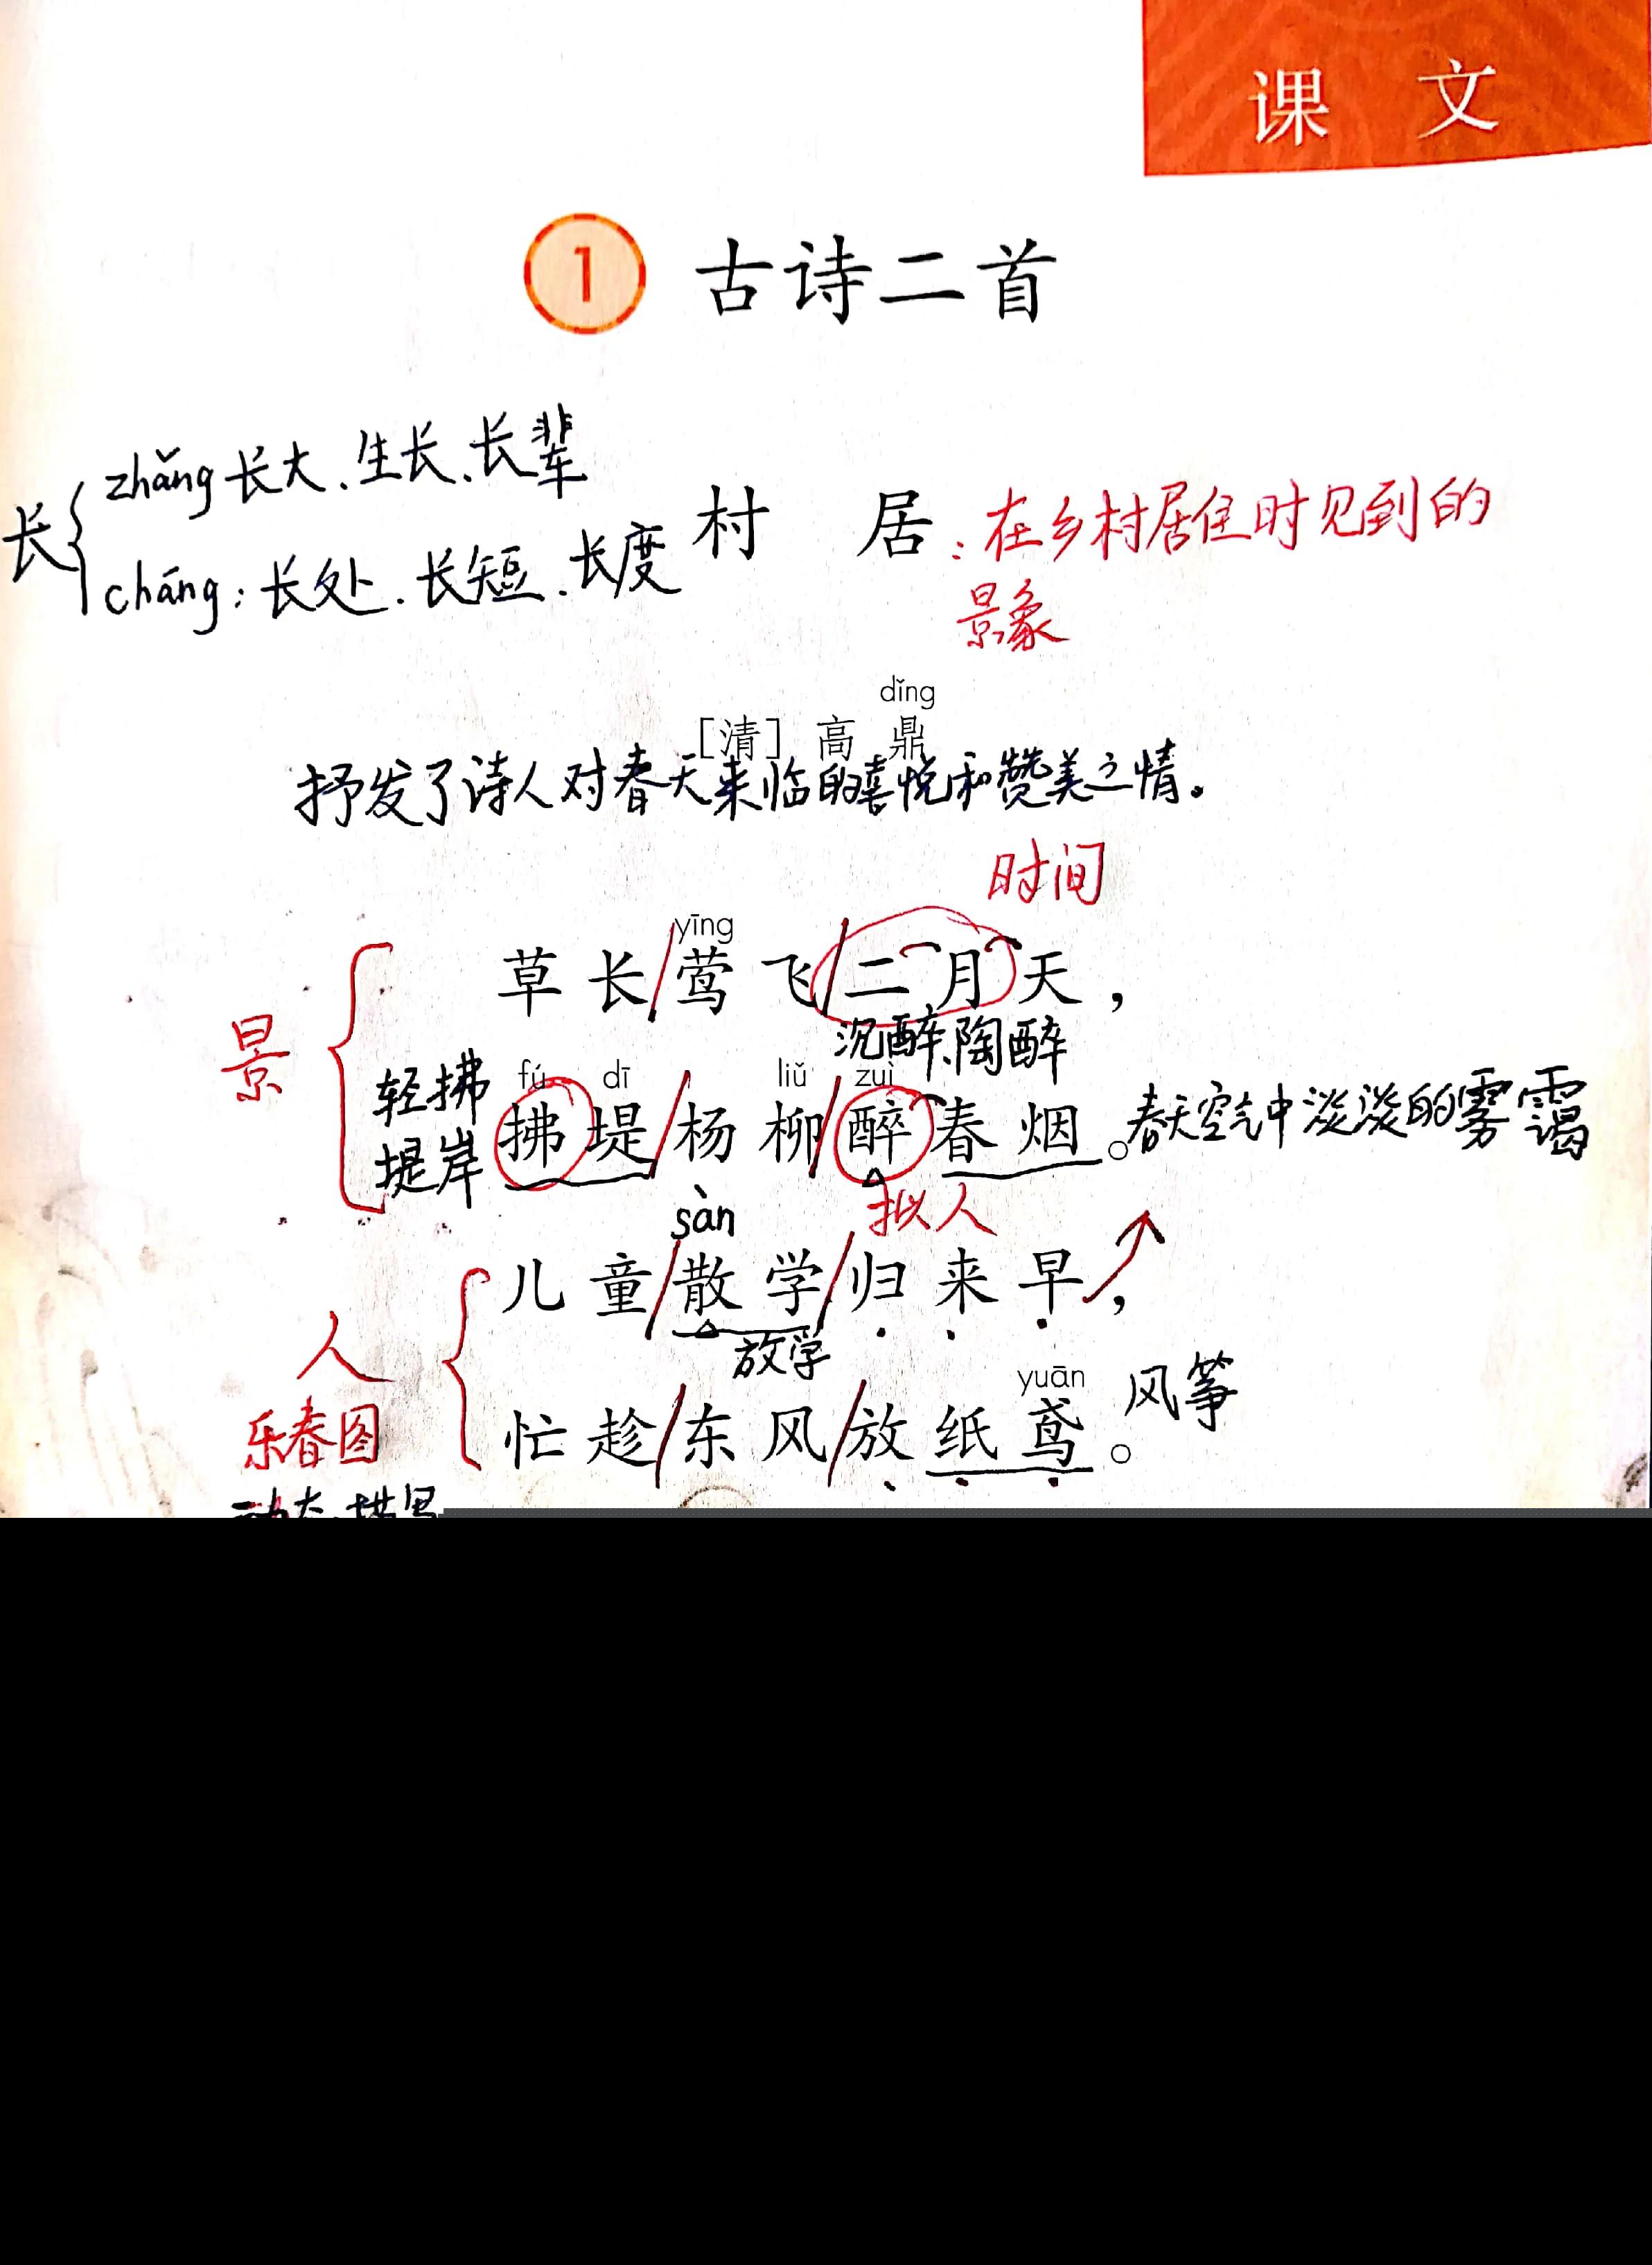 课 文
1 古诗二首
长 zhǎng 长大、生长、长辈
cháng:长处、长短、长度
村 居:在乡村居住时见到的
景象
dǐng
[清] 高 鼎
抒发了诗人对春天来临的喜悦和赞美之情。
时间
yīng
草长/莺飞/二月天,
沉醉、陶醉
景
轻拂
堤岸
fú dī liǔ zuì
拂堤/杨柳/醉春烟。春天空气中淡淡的雾霭
拟人
sàn
儿童/散学/归来早,
放学
人
yuān
忙趁/东风/放纸鸢。风筝
乐春图